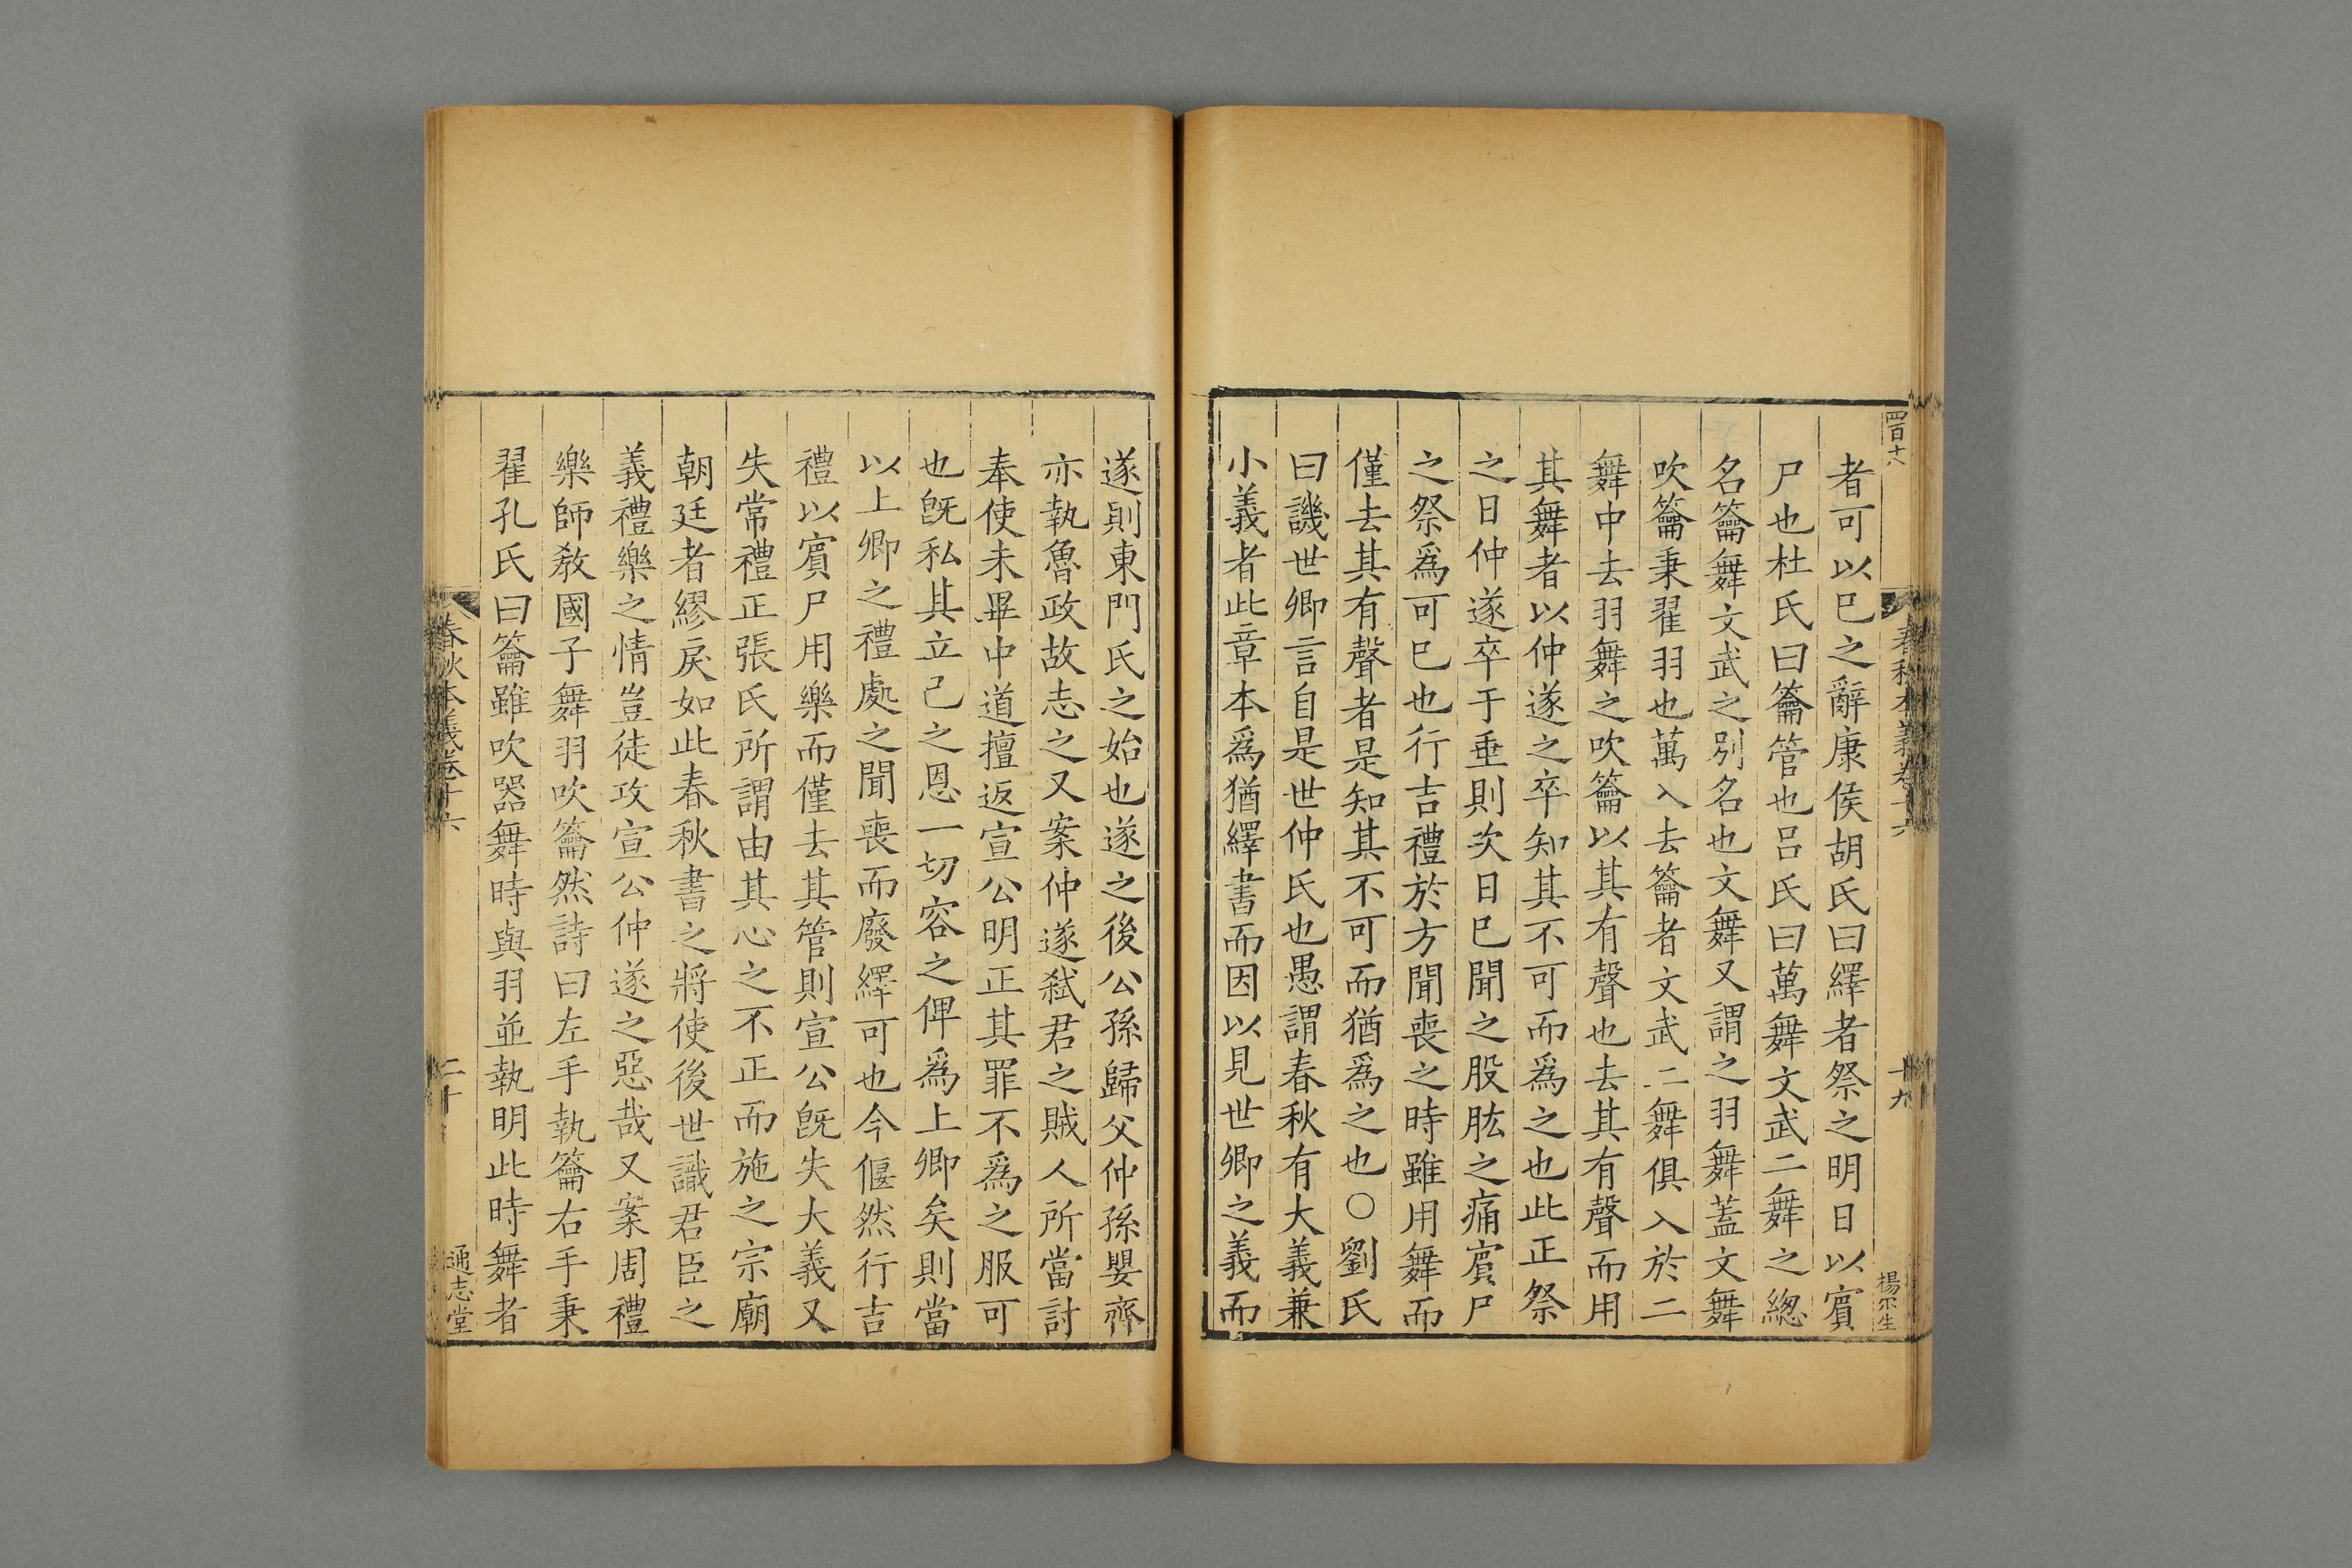 四百十八
春秋本義卷十六
十九
者可以已之辭康侯胡氏曰繹者祭之明日以賓
尸也杜氏曰籥管也呂氏曰萬舞文武二舞之緫
名籥舞文武之別名也文舞又謂之羽舞蓋文舞
吹籥秉翟羽也萬入去籥者文武二舞俱入於二
舞中去羽舞之吹籥以其有聲也去其有聲而用
其舞者以仲遂之卒知其不可而爲之也此正祭
之日仲遂卒于垂則次日巳聞之股肱之痛賓尸
之祭爲可巳也行吉禮於方聞喪之時雖用舞而
僅去其有聲者是知其不可而猶爲之也○劉氏
曰譏世卿言自是世仲氏也愚謂春秋有大義兼
小義者此章本爲猶繹書而因以見世卿之義而
遂則東門氏之始也遂之後公孫歸父仲孫嬰齊
亦執魯政故志之又案仲遂弒君之賊人所當討
奉使未畢中道擅返宣公明正其罪不爲之服可
也旣私其立己之恩一切容之俾爲上卿矣則當
以上卿之禮處之聞喪而廢繹可也今偃然行吉
禮以賓尸用樂而僅去其管則宣公旣失大義又
失常禮正張氏所謂由其心之不正而施之宗廟
朝廷者繆戾如此春秋書之將使後世識君臣之
義禮樂之情豈徒攻宣公仲遂之惡哉又案周禮
樂師敎國子舞羽吹籥然詩曰左手執籥右手秉
翟孔氏曰籥雖吹器舞時與羽並執明此時舞者
春秋本義卷十六
二十
通志堂